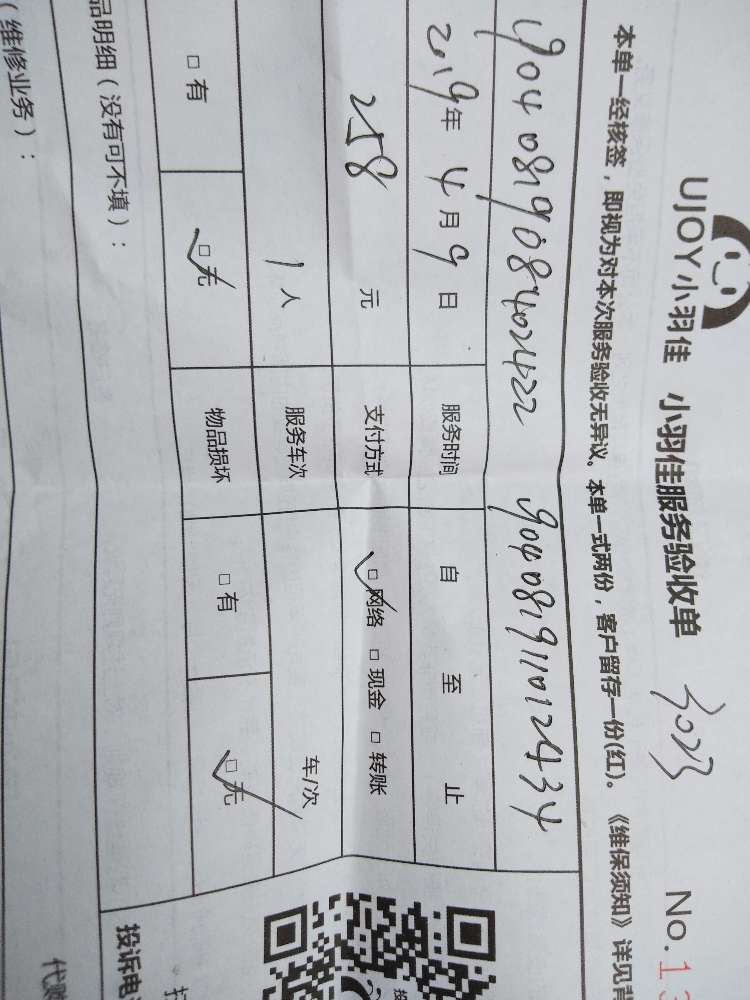 UJOY小羽佳 小羽佳服务验收单 3023 No.13
本单一经核签，即视为对本次服务验收无异议。本单一式两份，客户留存一份(红)。《维保须知》详见背
1904081908402422 1904081911012434
2019年4月9日 服务时间 自 至 止
258 元 支付方式 □网络 □现金 □转账
1人 服务车次 车/次
□有 □无 物品损坏 □有 □无
品明细（没有可不填）： 投诉电
（维修业务）：